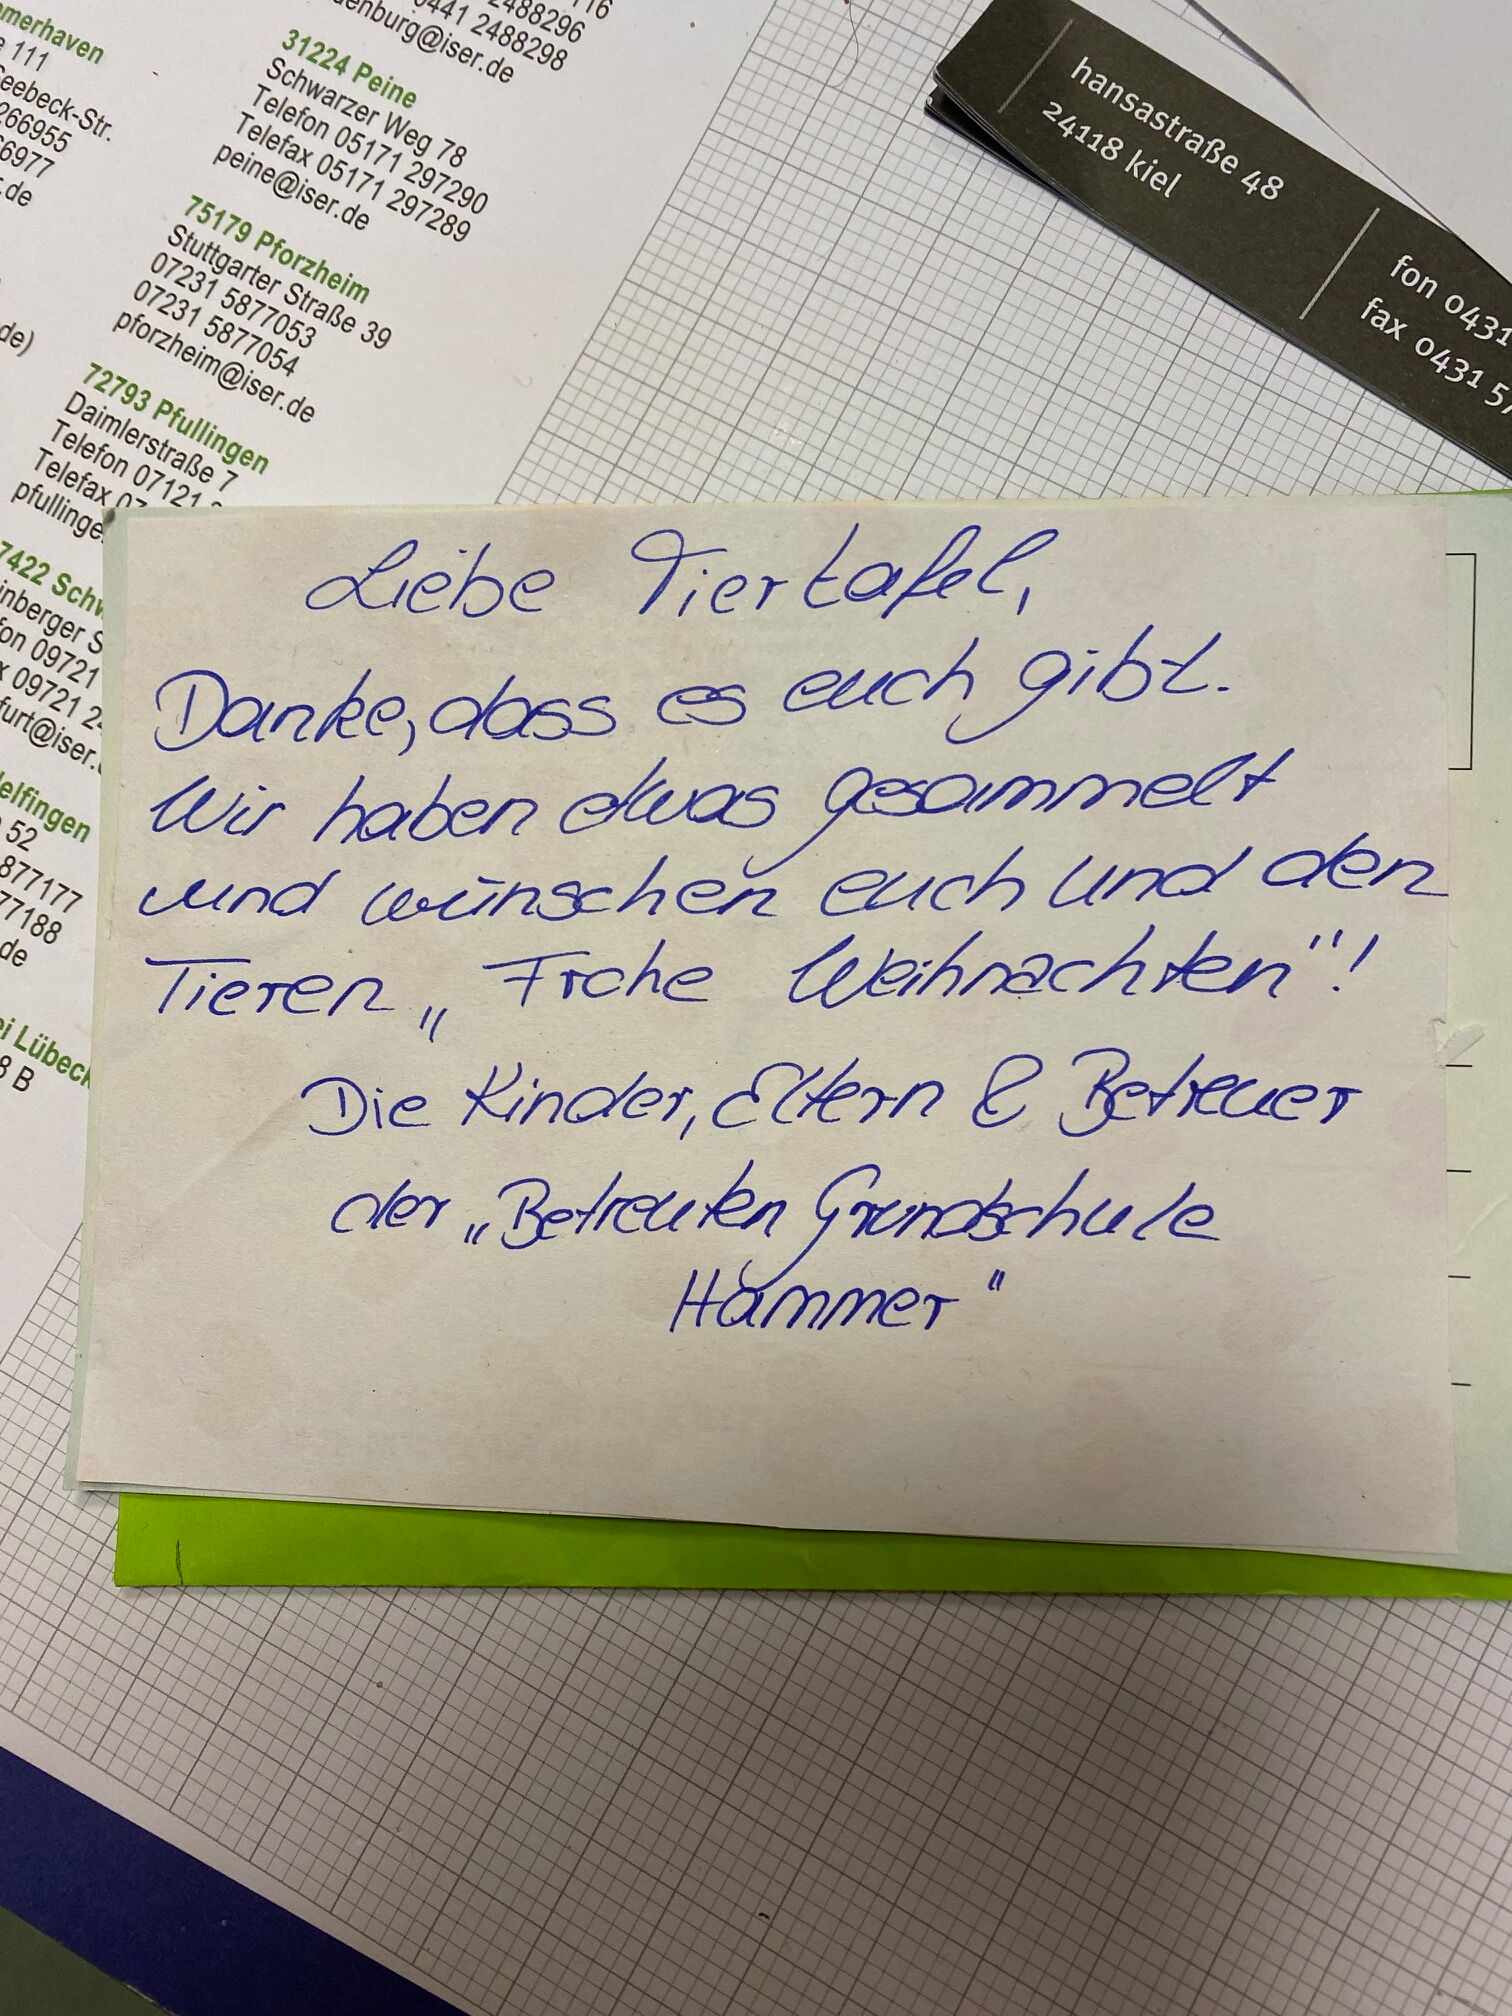 mmerhaven
111
Seebeck-Str.
266955
6977
.de
de)
116
2488296
0441 2488298
denburg@iser.de
31224 Peine
Schwarzer Weg 78
Telefon 05171 297290
Telefax 05171 297289
peine@iser.de
75179 Pforzheim
Stuttgarter Straße 39
07231 5877053
07231 5877054
pforzheim@iser.de
72793 Pfullingen
Daimlerstraße 7
Telefon 07121
Telefax 07
pfullinge
7422 Schw
inberger S
fon 09721
x 09721 2
furt@iser.
elfingen
52
877177
77188
de
ei Lübeck
8 B
hansastraße 48
24118 kiel
fon 0431
fax 0431 57
Liebe Tiertafel,
Danke, dass es euch gibt.
Wir haben etwas gesammelt
und wünschen euch und den
Tieren „Frohe Weihnachten"!
Die Kinder, Eltern & Betreuer
der „Betreuten Grundschule
Hammer"